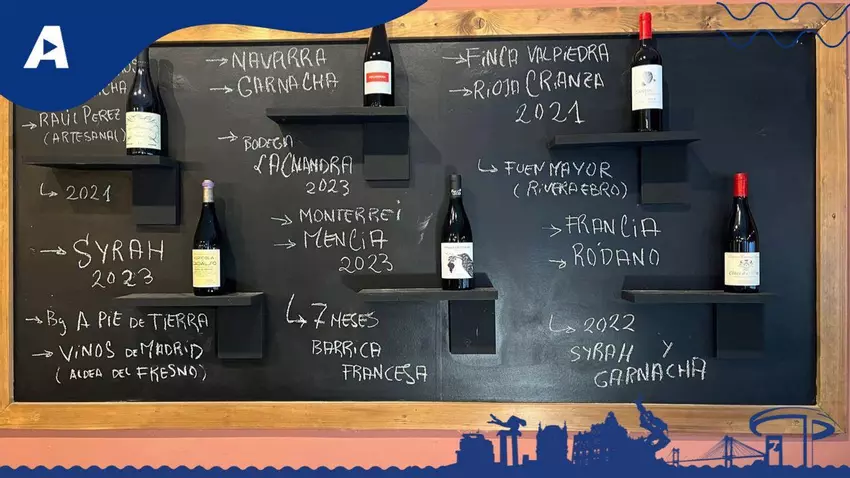 A
RAÚL PEREZ
(ARTESANAL)
2021
SYRAH
2023
Bg A PIE DE TIERRA
VINOS DE MADRID
(ALDEA DEL FRESNO)
NAVARRA
GARNACHA
BODEGA
2023
MONTERREI
MENCIA
2023
7 MESES
BARRICA
FRANCESA
FINCA VALPIEDRA
RIOJA CRIANZA
2021
FUENMAYOR
(RIVERA EBRO)
FRANCIA
RÓDANO
2022
SYRAH Y
GARNACHA